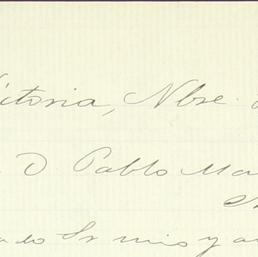 Victoria, Nbre.
D Pablo Ma
Sr mio y a